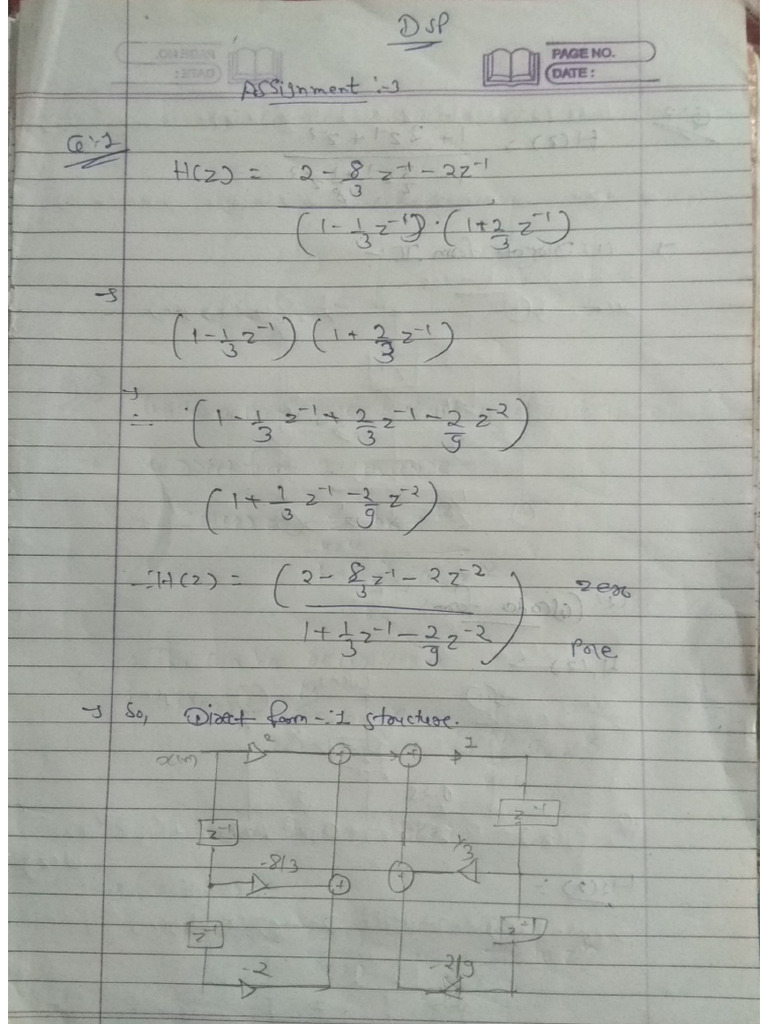 DSP
PAGE NO.
DATE :
Assignment :- 3
Q:-1
H(z) = 2 - 8/3 z⁻¹ - 2z⁻¹
(1 - 1/3 z⁻¹) · (1 + 2/3 z⁻¹)
→
(1 - 1/3 z⁻¹) (1 + 2/3 z⁻¹)
→ (1 - 1/3 z⁻¹ + 2/3 z⁻¹ - 2/9 z⁻²)
(1 + 1/3 z⁻¹ - 2/9 z⁻²)
∴ H(z) = (2 - 8/3 z⁻¹ - 2z⁻² zero
1 + 1/3 z⁻¹ - 2/9 z⁻²) Pole
→ So, Direct form - 1 structure.
x(n) 2 + + 1
z⁻¹ z⁻¹
-8/3 + + 1/3
z⁻¹ z⁻¹
-2 -2/9